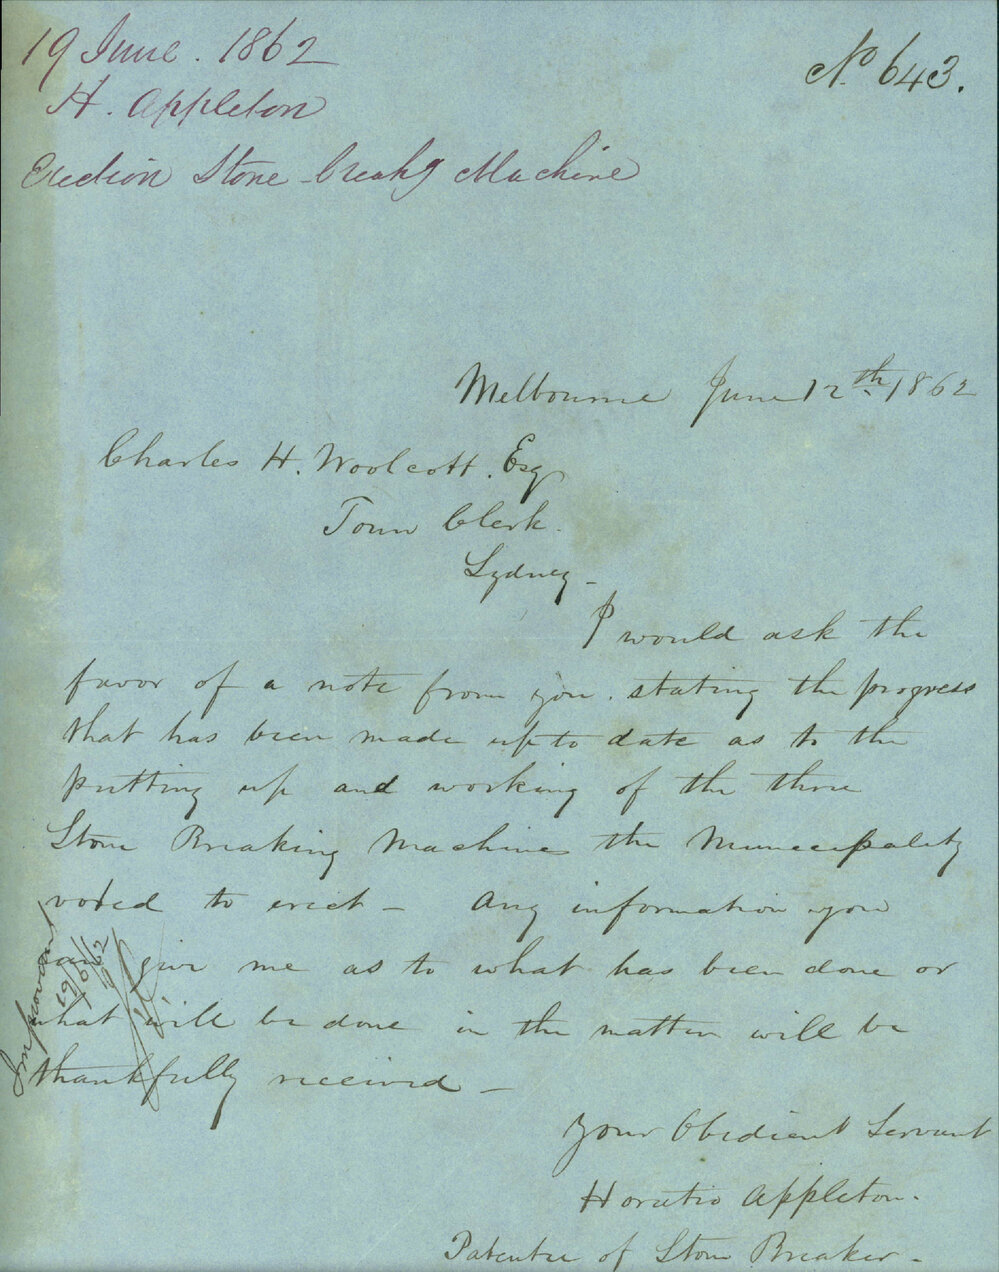 19 June. 1862
No. 643.
H. Appleton
Erection Stone breakg Machine
Melbourne June 12th 1862
Charles H. Woolcott. Esq
Town Clerk.
Sydney -
I would ask the
favor of a note from you. stating the progress
that has been made up to date as to the
putting up and working of the three
Stone Breaking Machines the Municipality
voted to erect - Any information you
can give me as to what has been done or
what will be done in the matter will be
thankfully received -
Your Obedient Servant
Horatio Appleton.
Patentee of Stone Breaker -
19/6/62